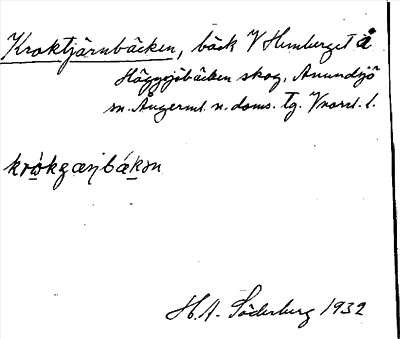 Kroktjärnbäcken, bäck V Hemberget å
Häggsjöbäcken skog, Anundsjö
sn. Ångerml. n. doms. tg. Vnorrl. l.
krok
H. A. Söderberg 1932